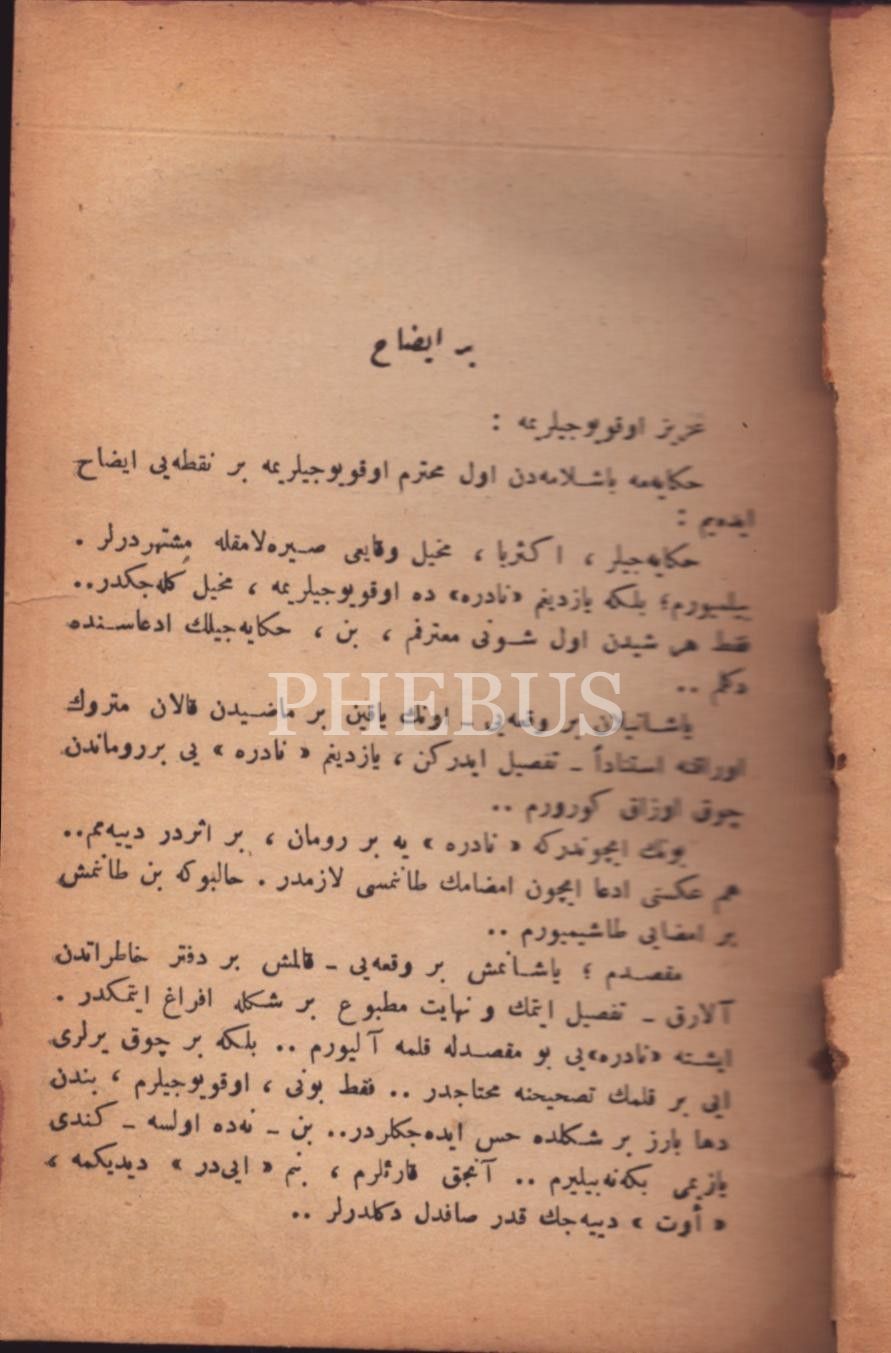 بر ایضاح
عزیز اوقویوجیلریمه :
حکایه‌مه باشلامه‌دن اول محترم اوقویوجیلریمه بر نقطه‌یی ایضاح
ایده‌یم :
حکایه‌جیلر ، اکثریا ، مخیل وقایعی صیره‌لامقله مشتهردرلر .
بیلمیورم؛ بلکه یازدیغم «نادره» ده اوقویوجیلریمه ، مخیل کله‌جکدر..
فقط هر شیدن اول شونی معترفم ، بن ، حکایه‌جیلك ادعاسنده
دکلم ..
PHEBUS
یاشانیلان بر وقعه‌یی ـ اونك یاقین بر ماضیدن قالان متروك
اوراقنه استناداً ـ تفصیل ایدرکن ، یازدیغم « نادره » یی بررومانـدن
چوق اوزاق کورورم ..
بونك ایچوندرکه « نادره » یه بر رومان ، بر اثردر دییه‌مم..
هم عکسنی ادعا ایچون امضامك طانمسی لازمدر . حالبوکه بن طانمش
بر امضایی طاشیمیورم ..
مقصدم ؛ یاشانمش بر وقعه‌یی ـ قالمش بر دفتر خاطراتدن
آلارق ـ تفصیل ایتمك و نهایت مطبوع بر شکله افراغ ایتمکدر .
ایشته «نادره»یی بو مقصدله قلمه آلیورم .. بلکه بر چوق یرلری
ایی بر قلمك تصحیحنه محتاجدر .. فقط بونی ، اوقویوجیلرم ، بندن
دها بارز بر شکلده حس ایده‌جکلردر.. بن ـ نه‌ده اولسه ـ کندی
یازیمی بکه‌نه‌بیلیرم .. آنجق قارئلرم ، بنم « ایی‌در » دیدیکمه ،
« أوت » دییه‌جك قدر صافدل دکلدرلر ..